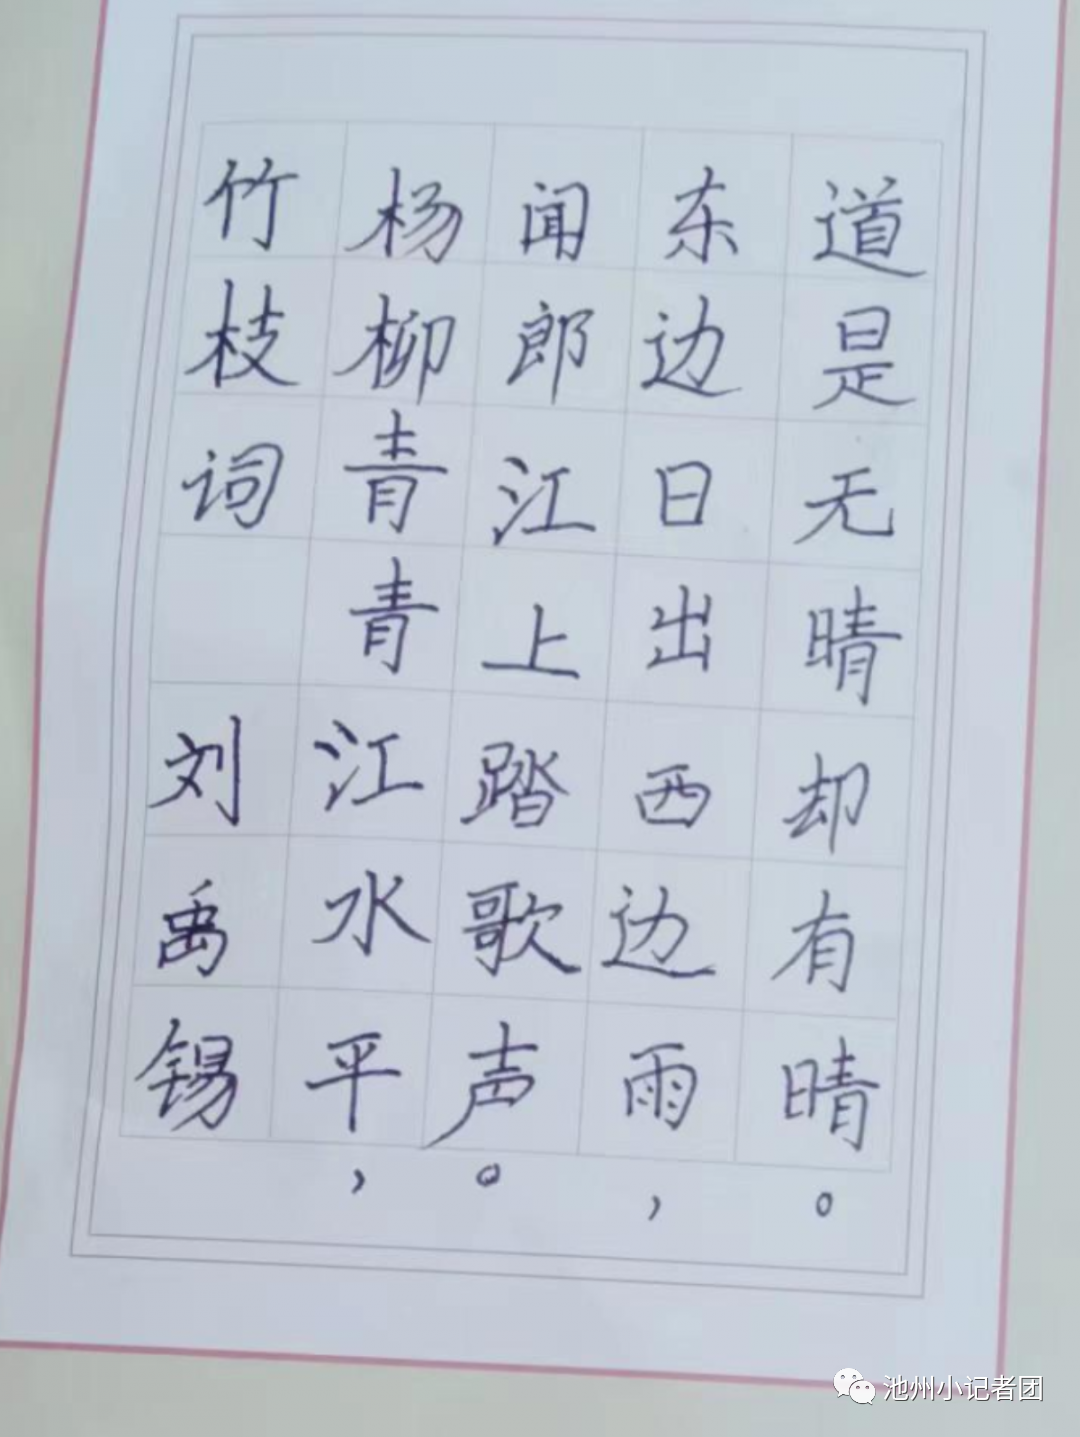 竹枝词 刘禹锡
杨柳青青江水平，
闻郎江上踏歌声。
东边日出西边雨，
道是无晴却有晴。
池州小记者团